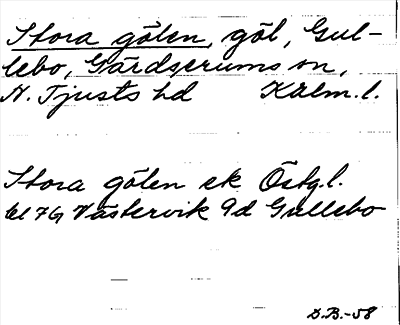 Stora gölen, göl, Gul-
lebo, Gärdserums sn,
N. Tjusts hd Kalm.l.
Stora gölen ek Östg.l.
bl 74 Västervik 9d Gullebo
G.B.-58